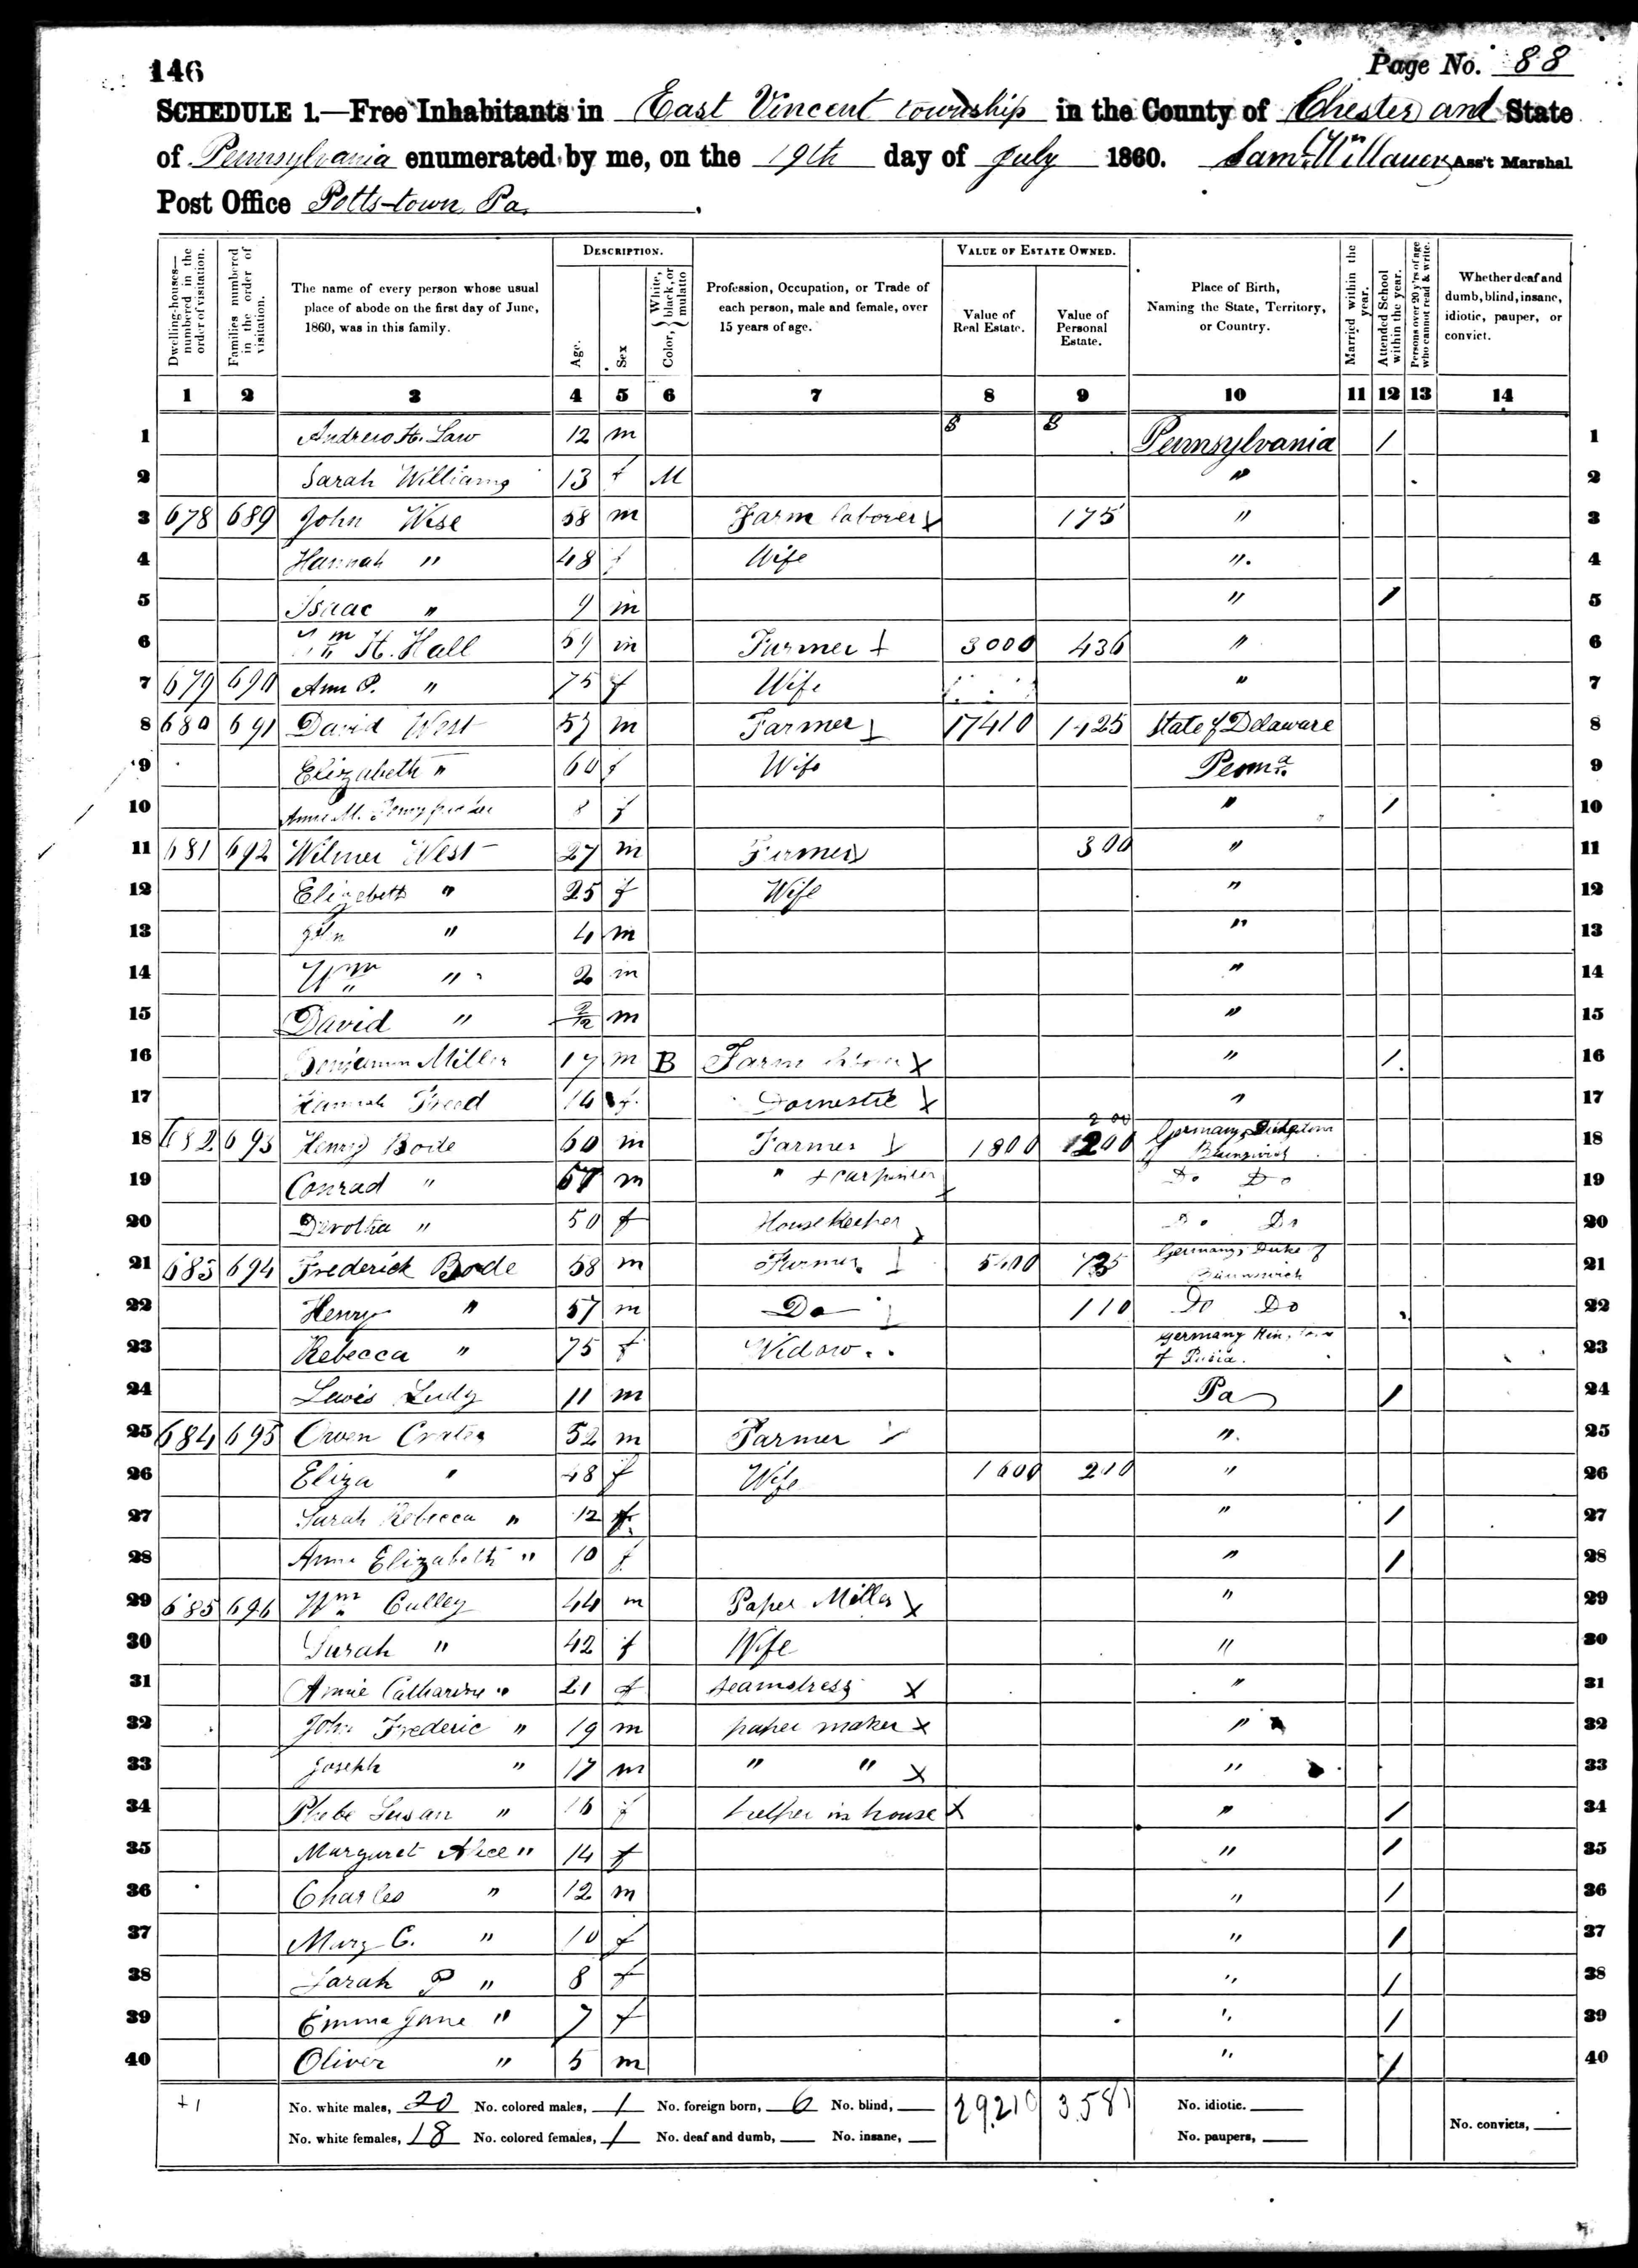 146
Page No. 88
SCHEDULE 1.—Free Inhabitants in East Vincent township in the County of Chester and State
of Pennsylvania enumerated by me, on the 19th day of July 1860. Ass't Marshal
Post Office Potts-town, Pa.
Dwelling-houses—numbered in the order of visitation.
Families numbered in the order of visitation.
The name of every person whose usual place of abode on the first day of June, 1860, was in this family.
DESCRIPTION.
Age.
Sex
Color, White, black, or mulatto
Profession, Occupation, or Trade of each person, male and female, over 15 years of age.
VALUE OF ESTATE OWNED.
Value of Real Estate.
Value of Personal Estate.
Place of Birth, Naming the State, Territory, or Country.
Married within the year.
Attended School within the year.
Persons over 20 y'rs of age who cannot read & write.
Whether deaf and dumb, blind, insane, idiotic, pauper, or convict.
1 2 3 4 5 6 7 8 9 10 11 12 13 14
1 Andrew H. Law 12 m $ $ Pennsylvania / 1
2 Sarah Williams 13 f M " 2
3 678 689 John Wise 58 m Farm laborer X 175 " 3
4 Hannah " 48 f Wife " 4
5 Isaac " 9 m " / 5
6 Wm H. Hall 59 m Farmer 3000 436 " 6
7 679 690 Ann P. " 75 f Wife " 7
8 680 691 David West 57 m Farmer 17410 1425 State of Delaware 8
9 Elizabeth " 60 f Wife Penna 9
10 Anne M. 8 f " / 10
11 681 692 Wilmer West 27 m Farmer 300 " 11
12 Elizebeth " 25 f Wife " 12
13 John " 4 m " 13
14 Wm " 2 m " 14
15 David " m " 15
16 Benjamin Miller 17 m B Farm X " / 16
17 Hannah Freed 14 f Domestic X " 17
18 682 693 Henry Bode 60 m Farmer 1800 200 Germany, of Brunswick 18
19 Conrad " m " + Carpenter Do Do 19
20 Dorotha " 50 f House Keeper Do Do 20
21 683 694 Frederick Bode 58 m Farmer 5400 Germany, Duke of Brunswick 21
22 Henry " 57 m Do 110 Do Do 22
23 Rebecca " 75 f Widow Germany of 23
24 Lewis Ludy 11 m Pa / 24
25 684 695 Owen 52 m Farmer " 25
26 Eliza " 48 f Wife 1600 210 " 26
27 Sarah Rebecca " 12 f " / 27
28 Anna Elizabeth " 10 f " / 28
29 685 696 Wm Culley 44 m Paper Miller X " 29
30 Sarah " 42 f Wife " 30
31 Annie Catharine " 21 f seamstress X " 31
32 John Frederic " 19 m paper maker X " 32
33 Joseph " 17 m " " X " 33
34 Phebe Susan " 16 f helper in house X " / 34
35 Margaret Alice " 14 f " / 35
36 Charles " 12 m " / 36
37 Mary C. " 10 f " / 37
38 Sarah P " 8 f " / 38
39 Emma Jane " 7 f " / 39
40 Oliver " 5 m " / 40
+1 No. white males, 20 No. colored males, 1 No. foreign born, 6 No. blind, 29,210 3,581 No. idiotic.
No. white females, 18 No. colored females, 1 No. deaf and dumb, No. insane, No. paupers, No. convicts,